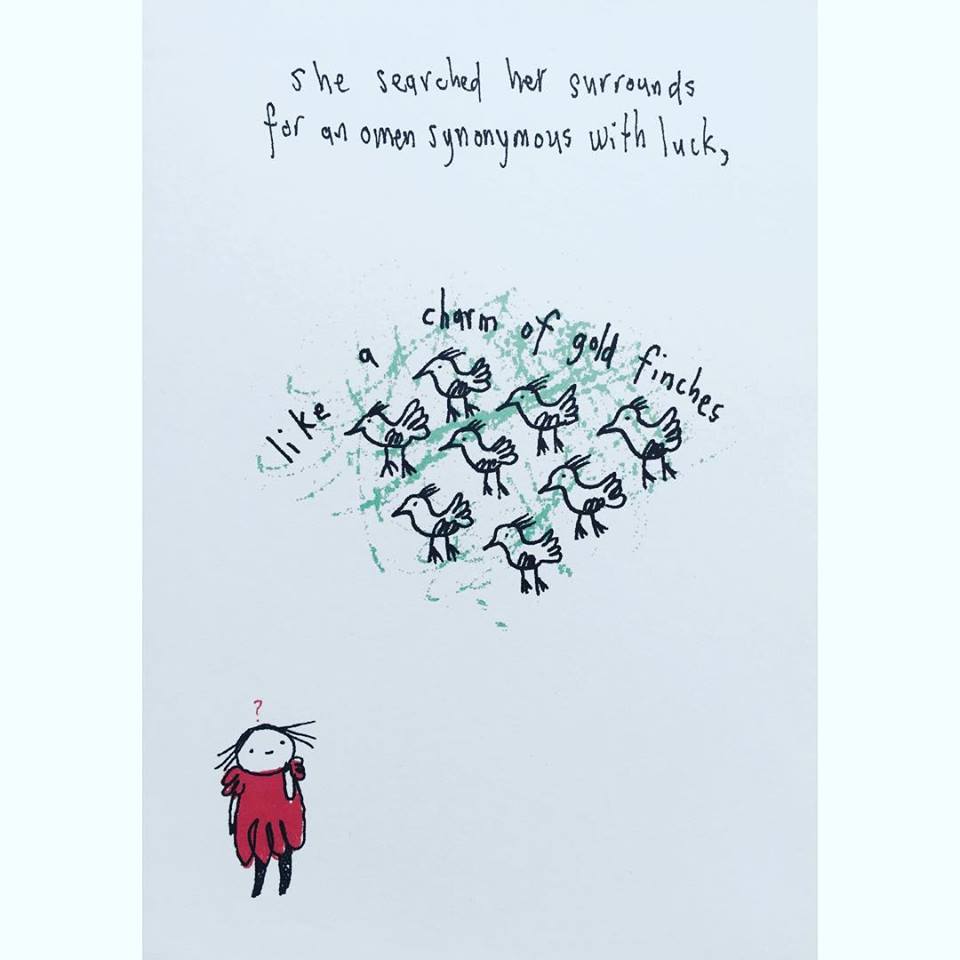 she searched her surrounds
for an omen synonymous with luck,
like a charm of gold finches
?